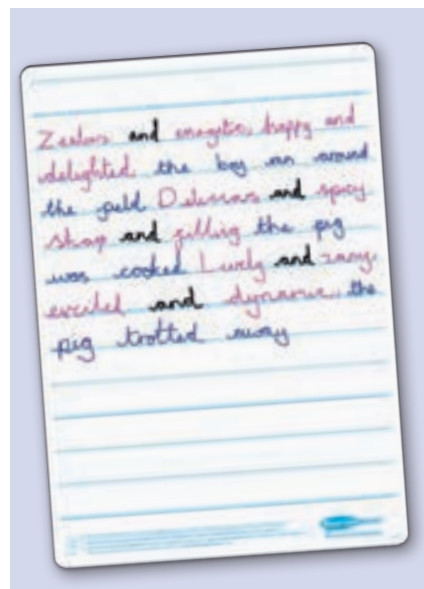 Zealous and energetic, happy and
delighted the boy ran around
the field Delicious and spicy
sharp and filling the pig
was cooked Lively and zany,
excited and dynamic, the
pig trotted away